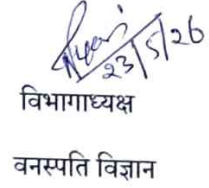 23/5/26
विभागाध्यक्ष
वनस्पति विज्ञान